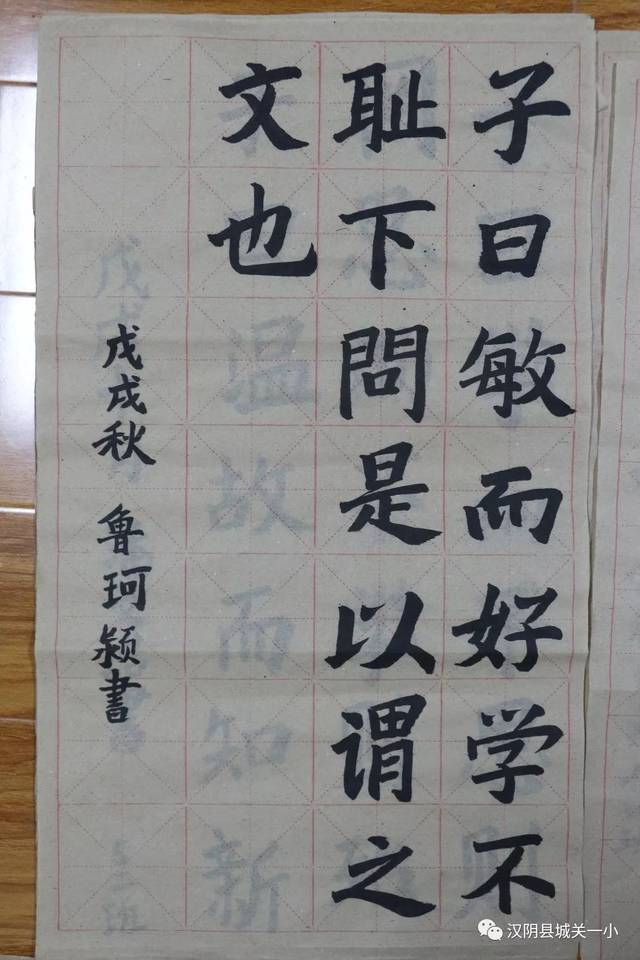 子曰敏而好学不
耻下問是以谓之
文也
戊戌秋 鲁珂颍書
温故而知新
汉阴县城关一小